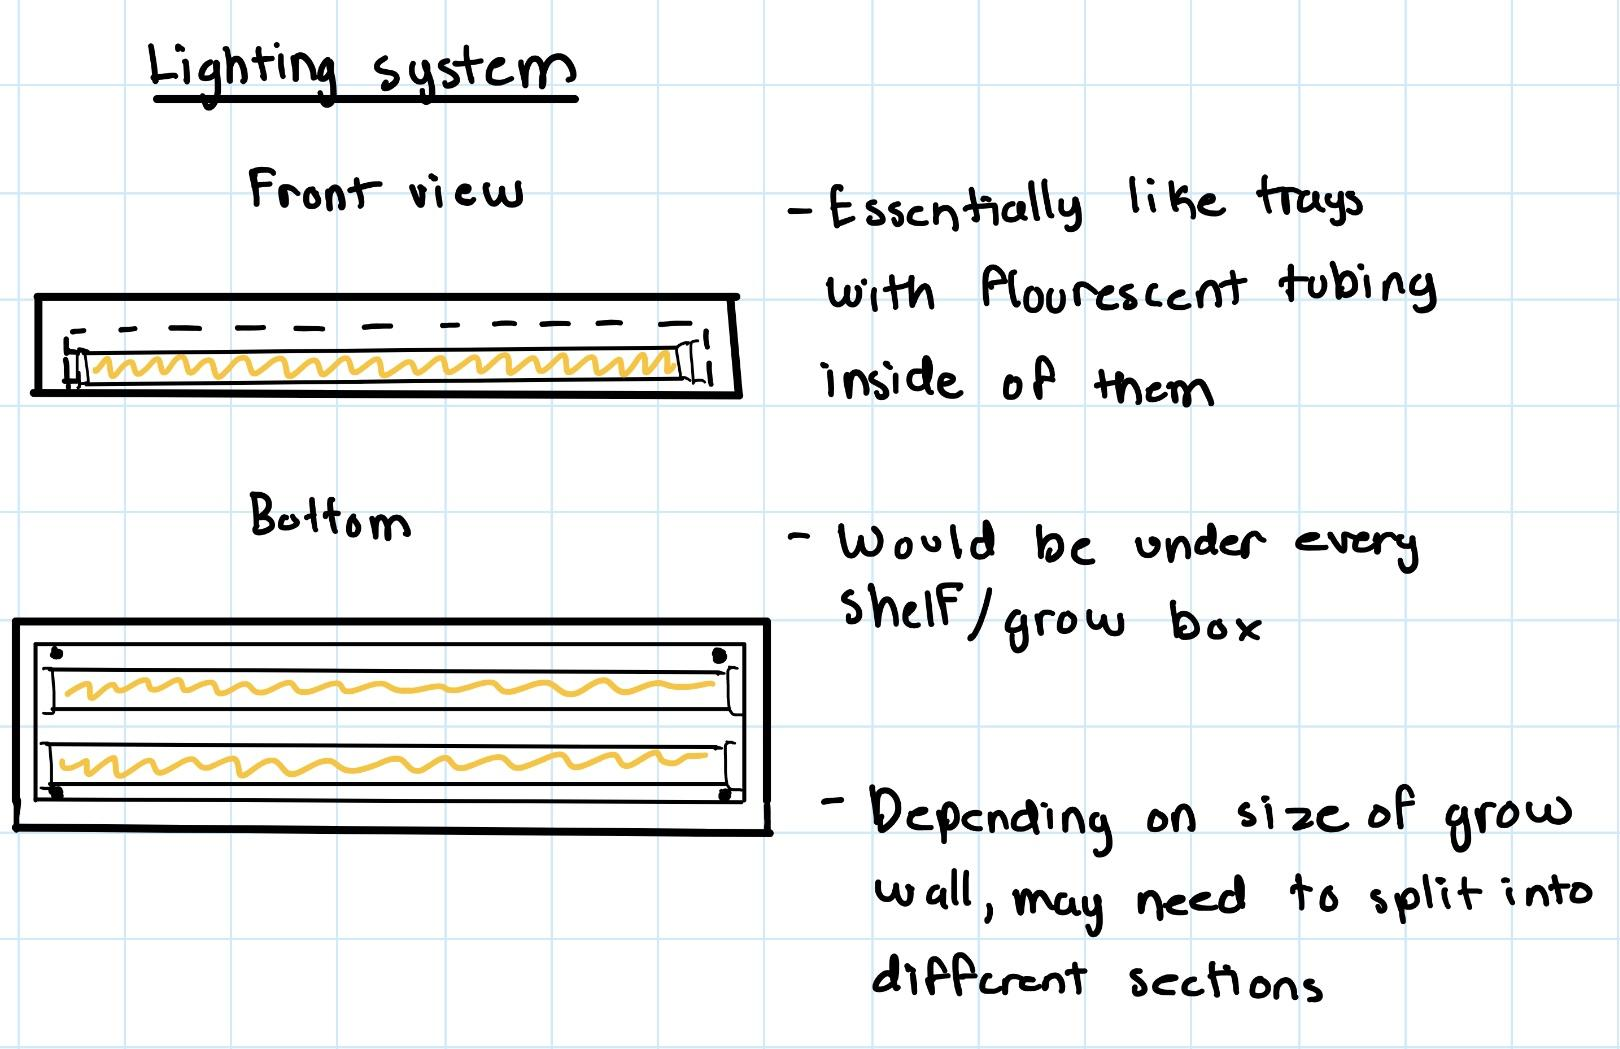 Lighting system
Front view
- Essentially like trays
with flourescent tubing
inside of them
Bottom
- Would be under every
shelf/grow box
- Depending on size of grow
wall, may need to split into
different sections